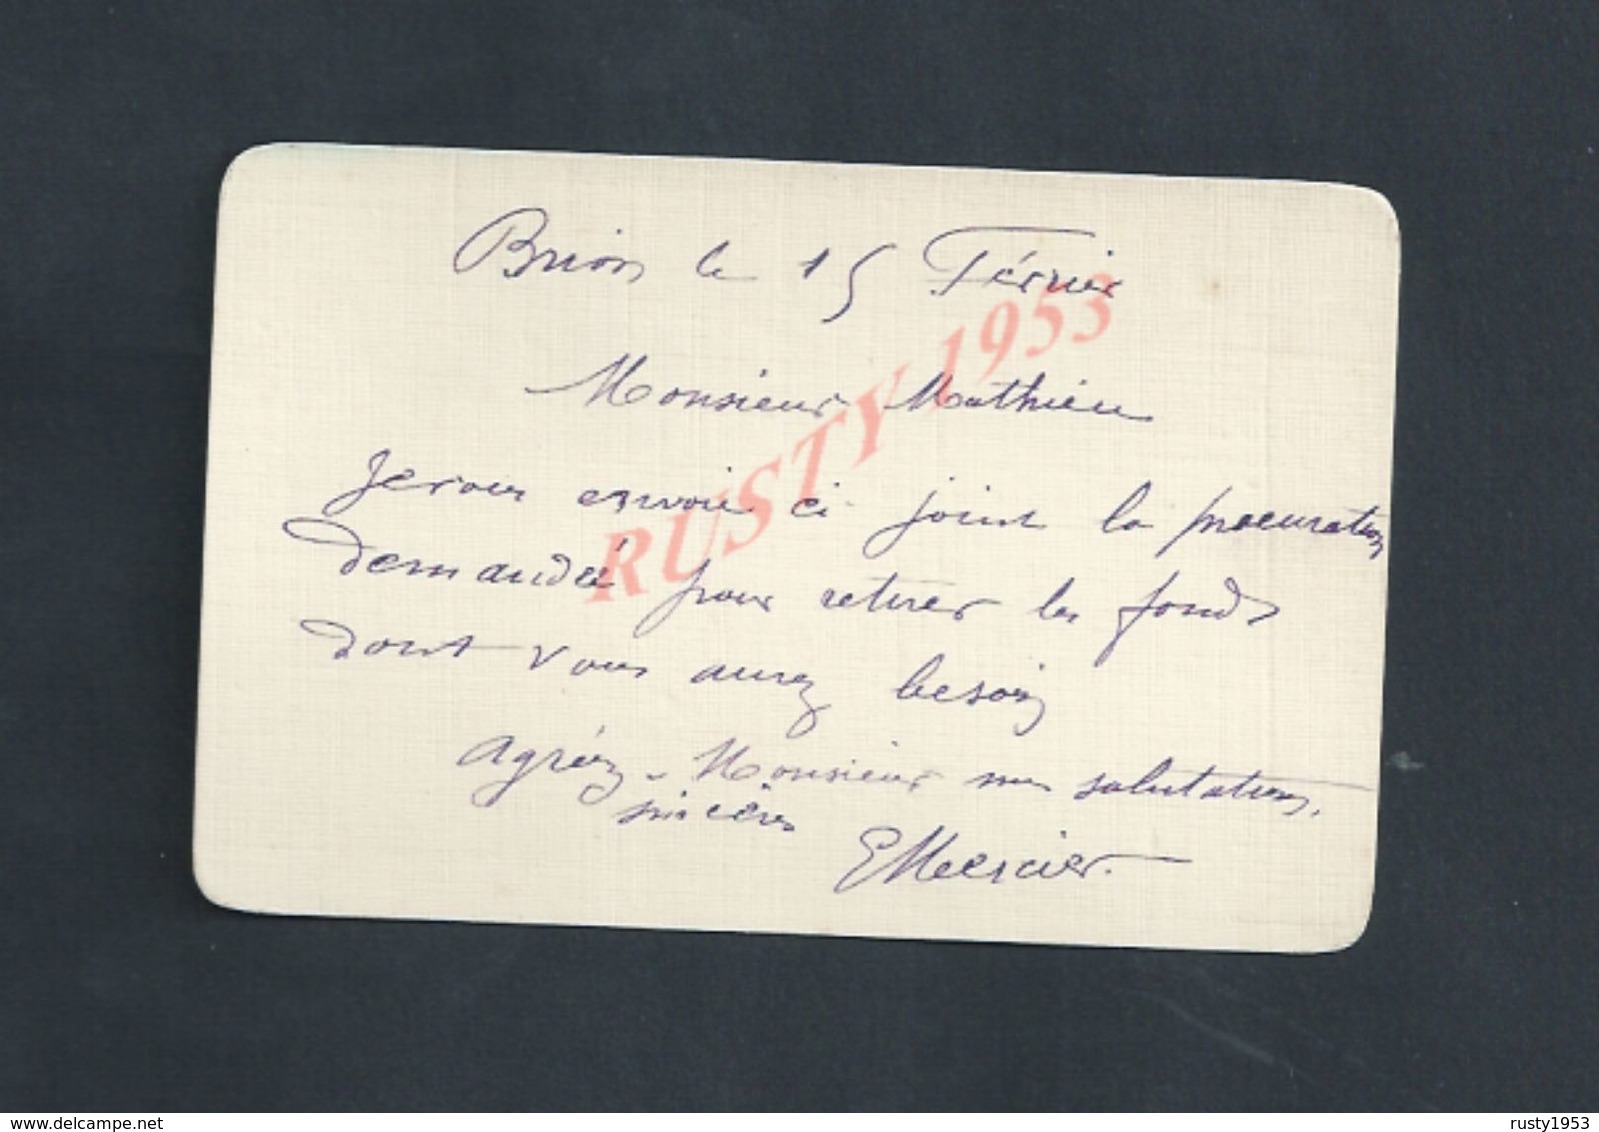 Brion le 15 Février
Monsieur Mathieu
Je vous envoie ci-joint la procuration
demandée pour retirer les fonds
dont vous aurez besoin
Agréez - Monsieur mes salutations.
sincères
EMercier.
RUSTY 1953
www.delcampe.net
rusty1953